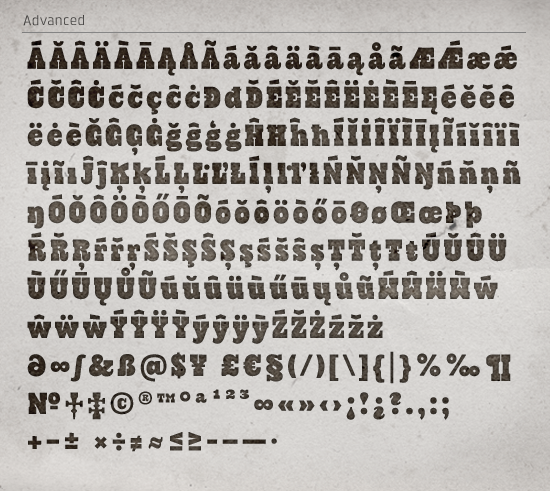 Advanced
ÁĂÂÄÀĀĄÅÃáăâäàāąåãÆǼæǽ
ĆČĈĊćčçĉċĐđÐÉĔĚÊËĖÈĒĘéĕěê
ëėèĞĜĢĠğĝģġĤĦĥħÍĬÎÏİÌĪĮĨíĭîïì
īįĩıĴĵĶķĹĻĽĿŁĺļľŀłŃŇÑŅÑŊńňņñ
ŋÓŎÔÖÒŐŌÕóŏôöòőōõØøŒœÞþ
ŔŘŖŕřŗŚŠŞŜȘşśšŝșŢŤţťÚŬÛÜ
ÙŰŪŲŮŨúŭûüùűūųůũẂŴẄẀẃ
ŵẅẁÝŶŸỲýŷÿỳŹŽŻźžż
∂∞∫&ß@$¥ £€§(/)[\]{|}%‰¶
№†‡©®™ºª¹²³∞«»‹›¡!¿?.,:;
+−± ×÷≠≈≤≥-–—·